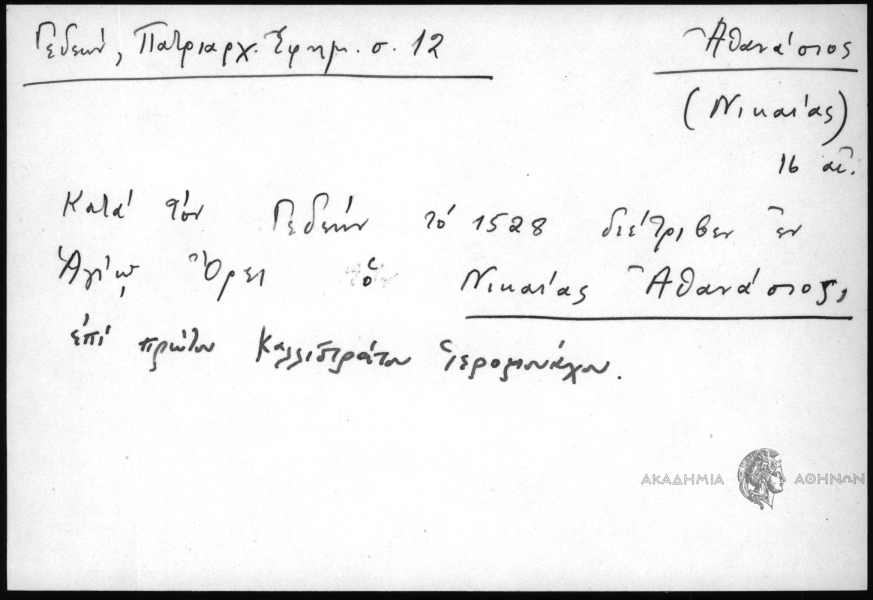 Γεδεών, Πατριαρχ. Ἐφημ. σ. 12
Ἀθανάσιος
(Νικαίας)
16 αἰ.
Κατά τόν Γεδεών τό 1528 διέτριβεν ἐν
Ἁγίῳ Ὄρει ὁ Νικαίας Ἀθανάσιος,
ἐπί πρώτου Καλλιστράτου ἱερομονάχου.
ΑΚΑΔΗΜΙΑ ΑΘΗΝΩΝ